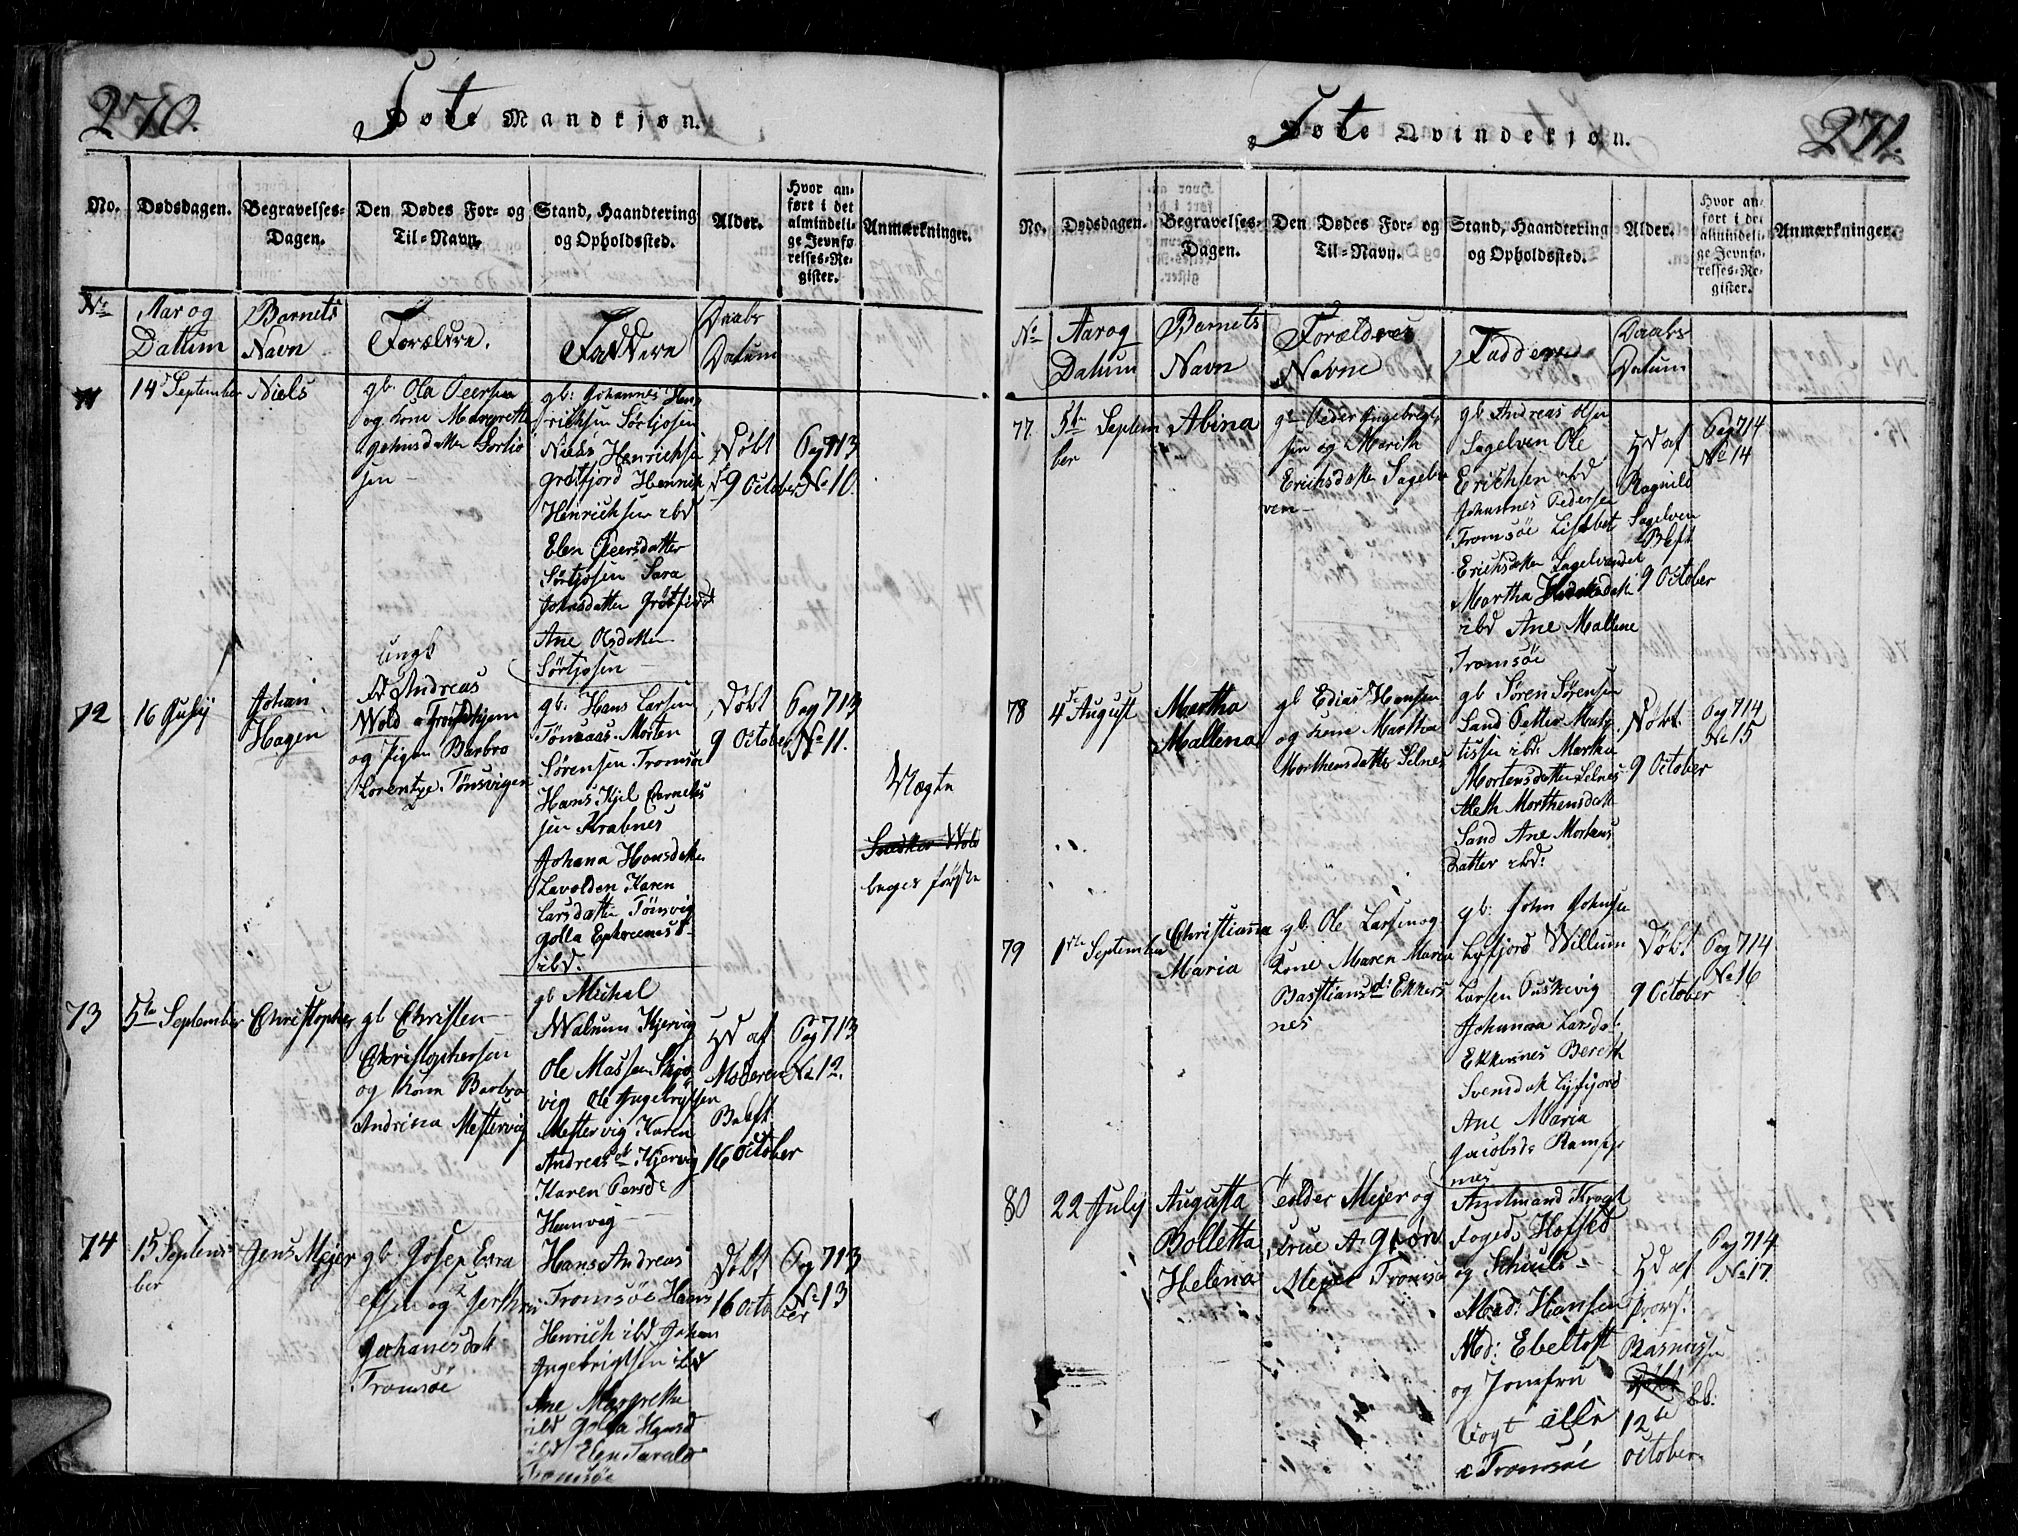 270.
Føte Mandkjøn.
No.
Dødsdagen.
Begravelses-
Dagen.
Den Dødes For- og
Til-Navn.
Stand, Haandtering
og Opholdssted.
Alder.
Hvor an-
ført i det
almindeli-
ge Jevnfø-
relses-Re-
gister.
Anmærkninger.
No
Aar og
Datum
Barnets
Navn
Forældre.
Faddere
Daabs
Datum
14 September
Niels
gb. Ola Peersen
og kone Margrethe
gb: Johannes Hen
richsen Sørtjosen
Niels Henrichsen
Grøtfjord Henrich
Henrichsen ibd
Elen Peersdatter
Sørtjosen Sara
Johnsdatter Grøtfjord
Ane Olsdatter
Sørtjosen
Døbt
9 October
Pag 713
No 10.
72
16 July
Johan
Hagen
ungk
Andreas
Wold Trondhjem
og Pigen Barbro
Lorentze Tønsvigen
gb. Hans Larsen
Tønsaas Morten
Sørensen Tromsøe
Hans Kjel Cornelius
sen Krabnes
Johana Hansdatter
Lavolden Karen
Larsdatter Tønsvig
ibd.
Døbt
9 October
Pag 713
No 11.
Wægte
Snedker Wold
73
5te September
Christopher
gb Christen
Christophersen
og kone Barbro
Andrina Mestervig
gb Michal
Walnum Kjervig
Ole Massen Skjø
vig Ole Ingebrigtsen
Mestervig Karen
Andreasdt Kjervig
Karen Persd:
Hamvog
HD af
Moderen
Beft
16 October
Pag 713
No 12.
74
15 Septem
ber
Jens Mejer
gb. Josep Esra
elsen og
Tromsøe
Hans Andreas
Tromsøe Hans
Henrich ibd Johan
Ingebrigtsen ibd
Ane Margrethe
ibd Golla Hansd
ibd
Tromsøe
Døbt
16 October
Pag 713
No 13
271.
Føte Qvindekjøn.
No.
Dødsdagen.
Begravelses-
Dagen.
Den Dødes For- og
Til-Navn.
Stand, Haandtering
og Opholdssted.
Alder.
Hvor an-
ført i det
almindeli-
ge Jevnfø-
relses-Re-
gister.
Anmærkninger.
No
Aar og
Datum
Barnets
Navn
Forældres
Navne
Faddere
Daabs
Datum
77.
5te Septem
ber
Abina
gb Peder Ingebrigt
sen og Marith
Erichsdatter Sagel
ven
gb Andreas Olsen
Sagelven Ole
Erichsen ibd
Johannes Pedersen
Tromsøe Lisabet
Erichsdatter Sagelvandet
Martha
ibd Ane Mallene
Tromsøe
HD af
Ragnild
Sagelven
Beft
9 October
Pag 714
No 14
78
4 August
Martha
Mallena
gb Edias Hansen
og kone Martha
Morthensdatter Selnes
gb Søren Sørensen
Sand Petter Math
issen ibd: Martha
Mortensdatter Selnes
Aleth Morthensdatt
Sand Ane Mortens
datter ibd:
Døbt
9 October
Pag 714
No 15
79
1ste September
Christianna
Maria
gb. Ole Larsen og
kone Maren Maria
Bastiansd: Ekkers
nes
gb. John Johnsen
Lyfjord Willum
Larsen Puskevig
Johanna Larsda:
Ekkernes Bereth
Svensdatt Lyfjord
Ane Maria
Jacobsd: Ramfjr
nes
Døbt
9 October
Pag 714
No 16
80
22 July
Augusta
Bolletta
Helena
Peder Mejer og
Frue A: Grøn
Mejer Tromsø
Amtmand Krogh
Foged Hofsted
og Schult
Mad: Hansen
Md: Ebeltoft
og Jomfru
Vogt alle
i Tromsøe
HD af
Prov.
Rasmusen
Døbt
bb.
12te
October
Pag 714
No 17